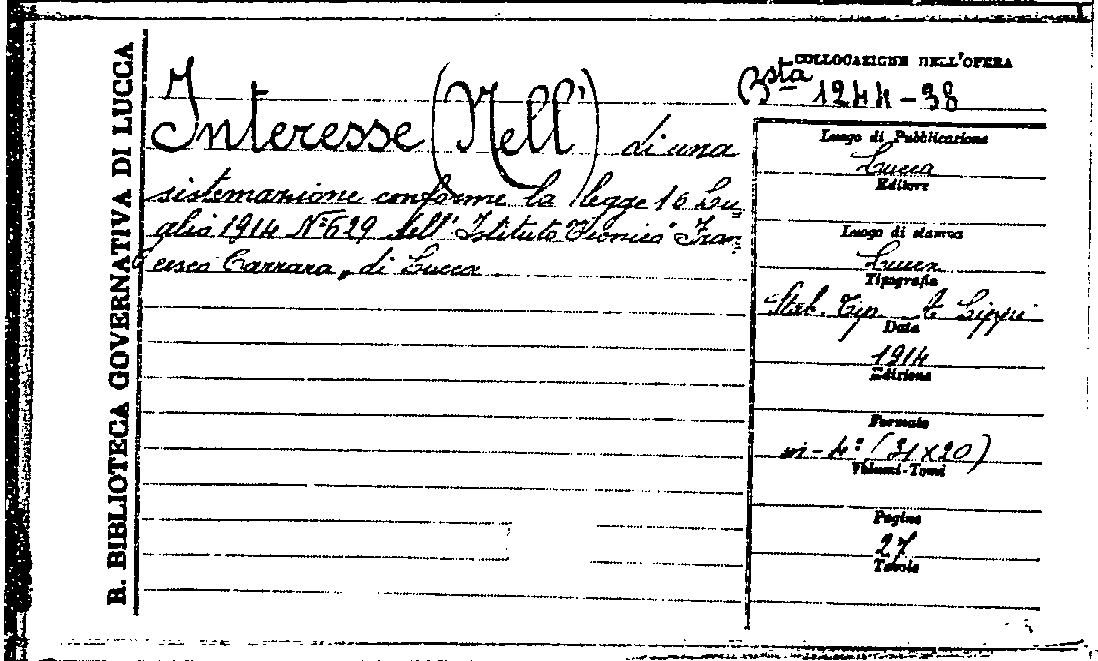 R. BIBLIOTECA GOVERNATIVA DI LUCCA
Interesse (Nell') di una
sistemazione conforme la legge 16 Lu=
glio 1914 N° 629 dell' Istituto Tecnico "Fran=
cesco Carrara" di Lucca
COLLOCAZIONE DELL'OPERA
Bsta 1244-38
Luogo di Pubblicazione
Lucca
Editore
Luogo di stampa
Lucca
Tipografia
Stab. Tip. Lippi
Data
1914
Edizione
Formato
in-4° (31x20)
Volumi-Tomi
Pagine
27
Tavole